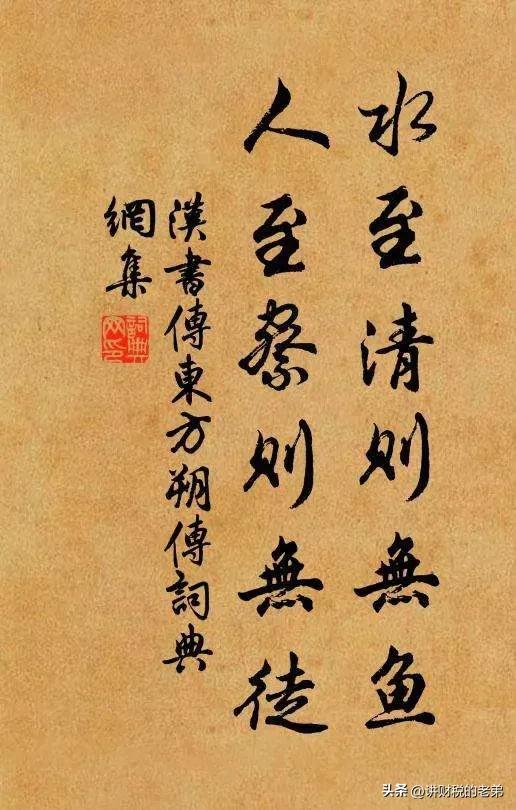 水至清则無鱼
人至察则無徒
漢書傳東方朔傳詞典
網集
詞典
网印
头条 @讲财税的老弟